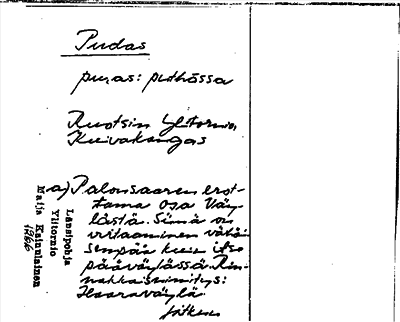 Pudas
puras: puthässa
Ruotsin Ylitornio,
Kuivakangas
a) Palonsaaren erot-
tama osa Väy-
lästä. Siinä on
virtaaminen vähä-
sempää kuin itse
pääväylässä. Rin-
nakkaisnimitys:
Haaraväylä
jatkuu
Länsipohja
Ylitornio
Maija Kainulainen
1966